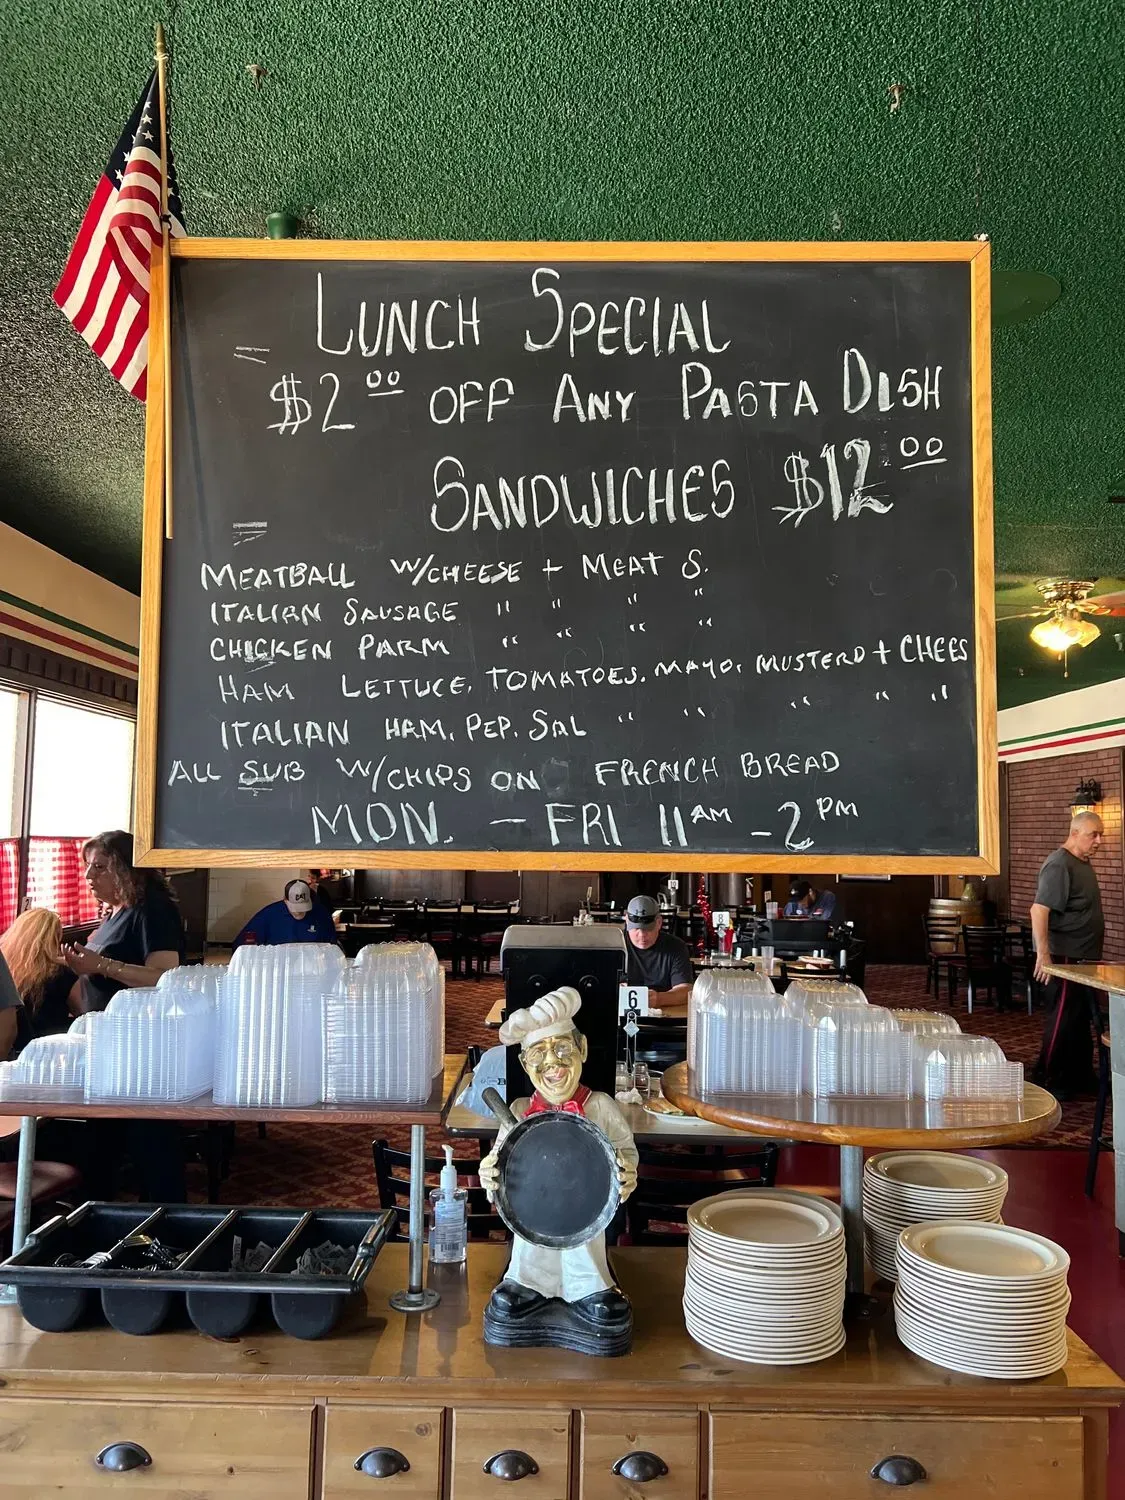 LUNCH SPECIAL
$2.00 OFF ANY PASTA DISH
SANDWICHES $12.00
MEATBALL W/CHEESE + MEAT S.
ITALIAN SAUSAGE " " " "
CHICKEN PARM " " " "
HAM LETTUCE, TOMATOES, MAYO, MUSTERD + CHEES
ITALIAN HAM, PEP. SAL " " " " "
ALL SUB W/CHIPS ON FRENCH BREAD
MON. - FRI 11AM - 2PM
8
6